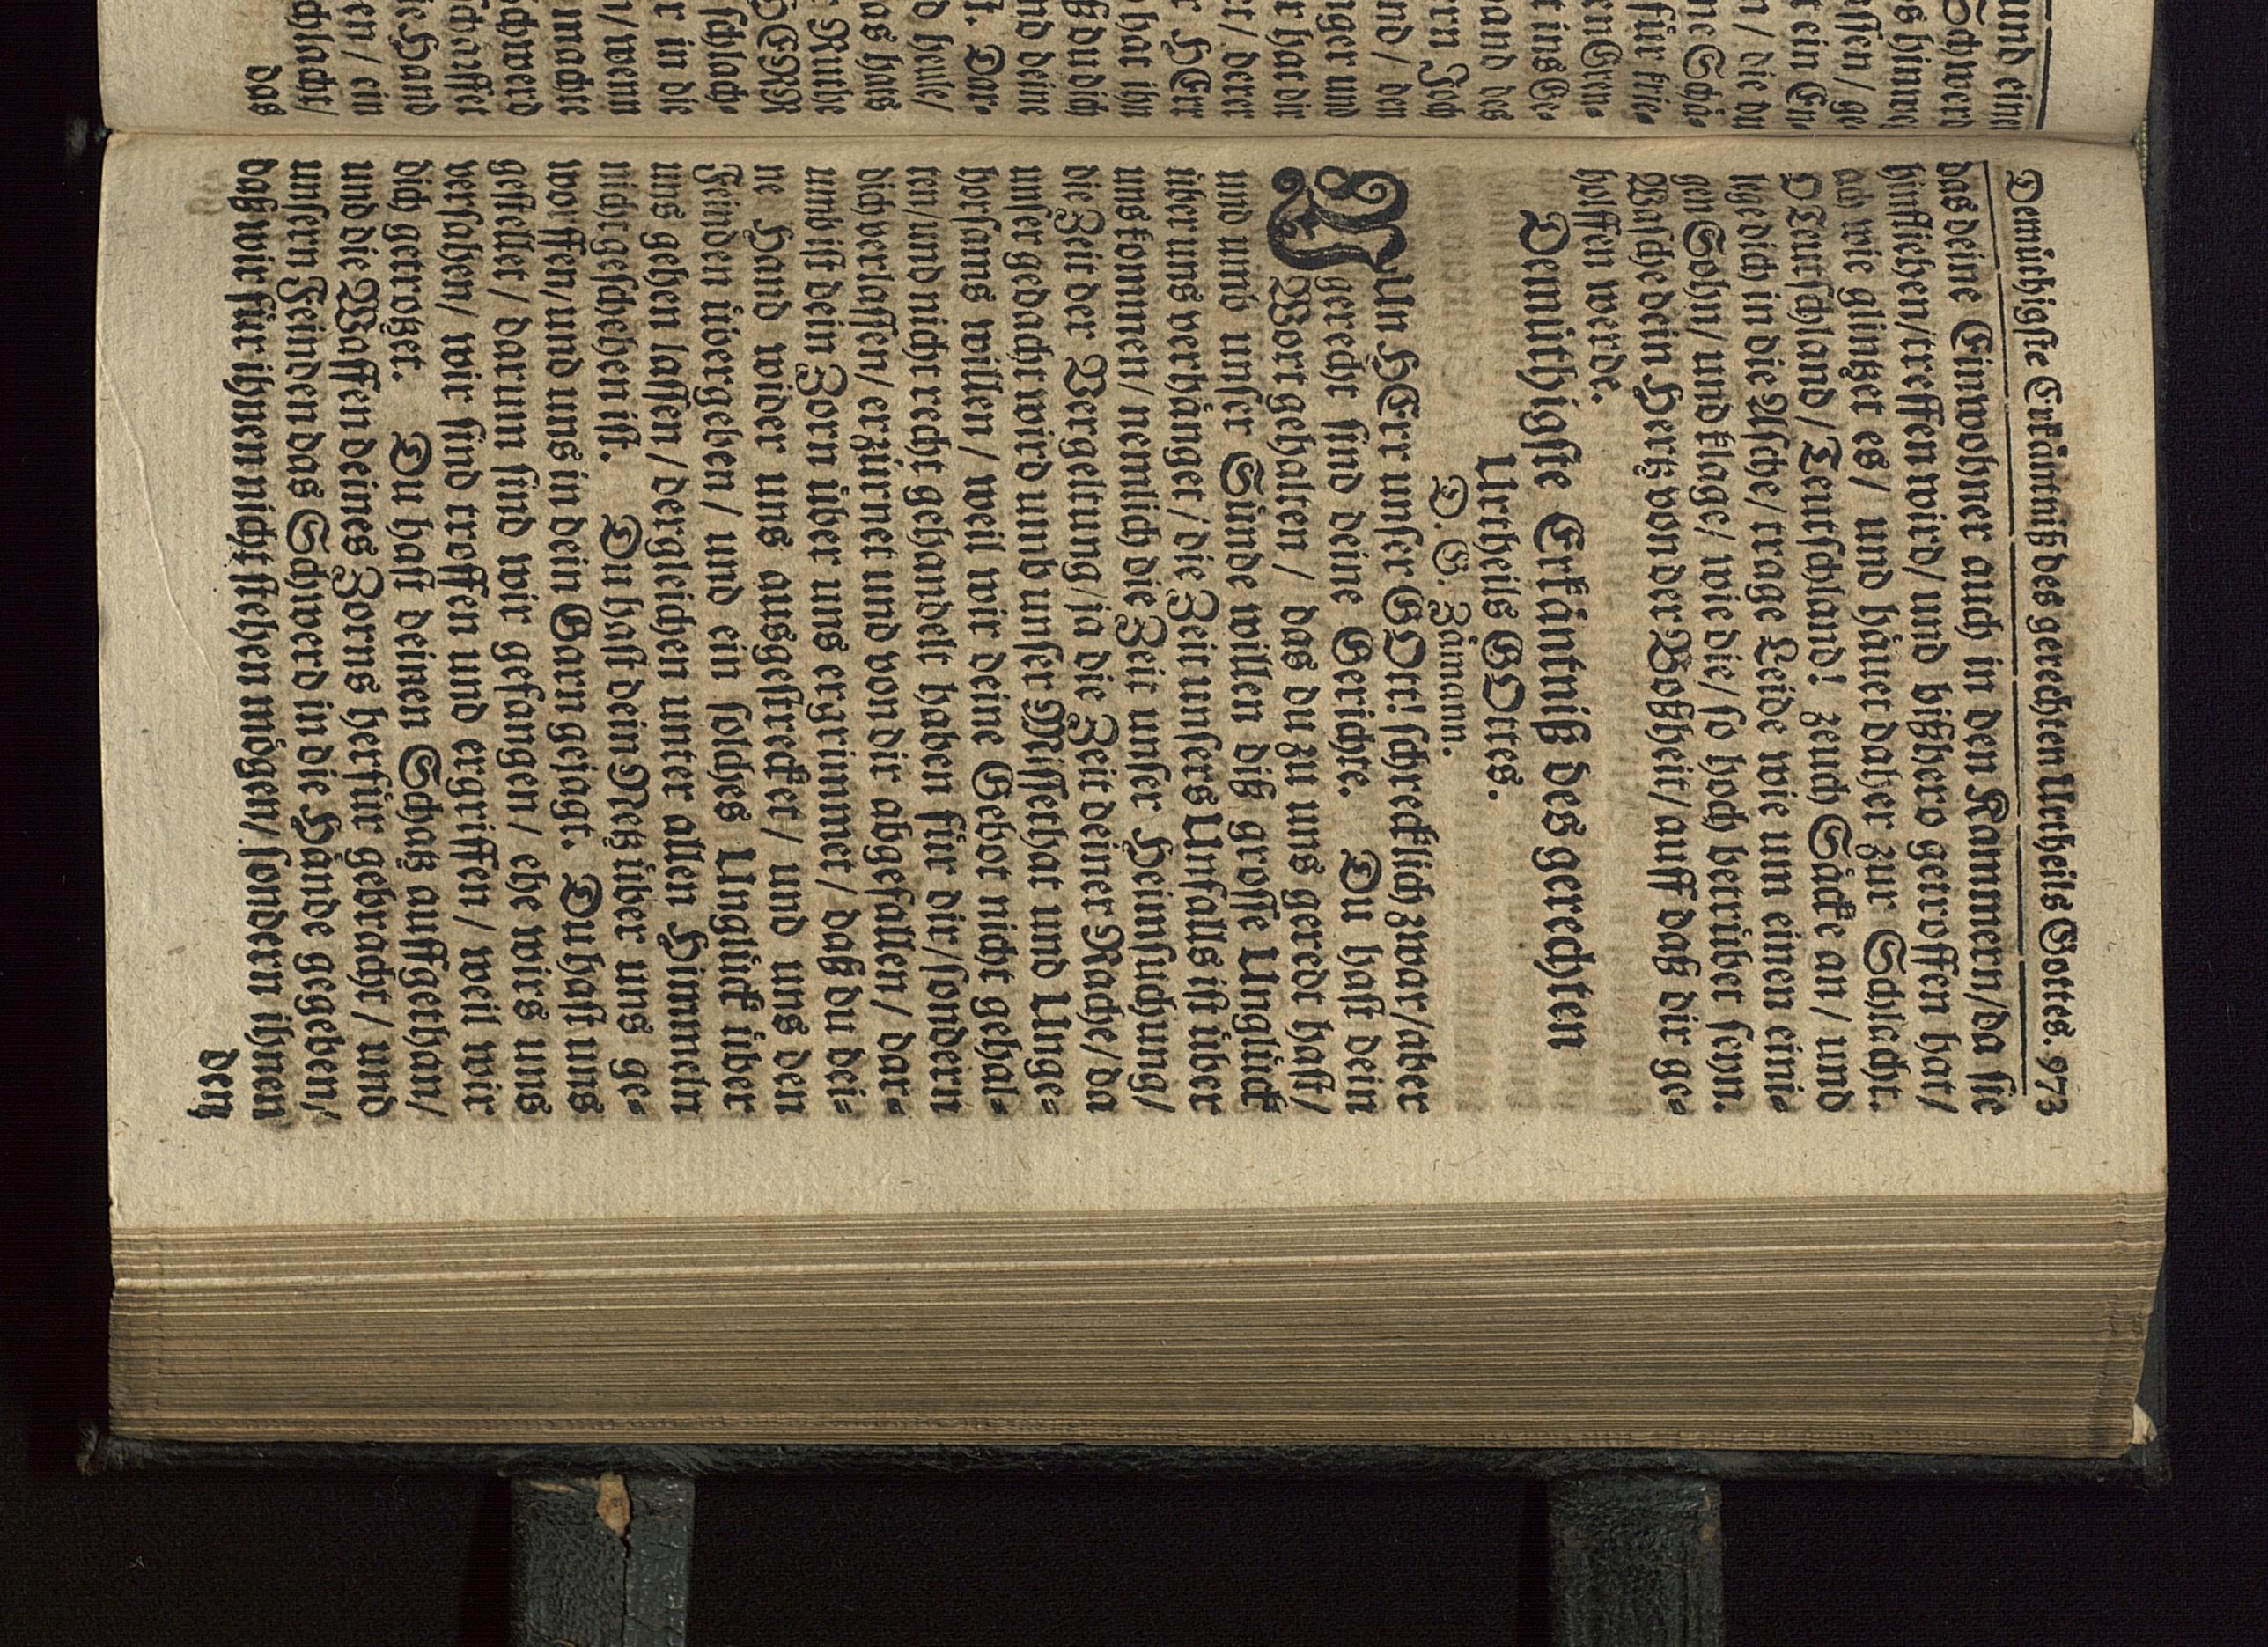 und eine
Schwerd
s hinweg
essen / ge
t ein En
n / die du
me Schä
für frie
en Gren
t ins Ge
and des
ern Joch
nd / den
nger und
r hat dir
et / derer
r HErr
hat ihn
ßdudich
nd deine
t. Dar-
d heule /
as haus
r Ruthe
SERR
schlach-
r in die
n / wenn
machte
schwerd
schärffet
ie Hand
en / ein
chlacht /
das
Demüthigste Erkäntniß des gerechten Urtheils Gottes. 973
das deine Einwohner auch in den Kammern / da sie
hinfliehen / treffen wird / und bißhero getroffen hat /
ach wie glintzet es / und häuet daher zur Schlacht.
O Teutschland / Teutschland! zeuch Säcke an / und
lege dich in die Asche / trage Leide wie um einen eini-
gen Sohn / und klage / wie die / so hoch betrübet seyn.
Wasche dein Hertz von der Boßheit / auff daß dir ge-
holffen werde.
Demüthigste Erkäntniß des gerechten
Urtheils GOttes.
D. G. Zämann.
NUn HErr unser GOtt! schrecklich zwar / aber
gerecht sind deine Gerichte. Du hast dein
Wort gehalten / das du zu uns geredt hast /
und umb unser Sünde willen diß grosse Unglück
über uns verhänget / die Zeit unsers Unfalls ist über
uns kommen / nemlich die Zeit unser Heimsuchung /
die Zeit der Vergeltung / ja die Zeit deiner Rache / da
unser gedacht wird umb unser Missethat und Unge-
horsams willen / weil wir deine Gebot nicht gehal-
ten / und nicht recht gehandelt haben für dir / sondern
dich verlassen / erzürnet und von dir abgefallen / dar-
umb ist dein Zorn über uns ergrimmet / daß du dei-
ne Hand wider uns ausgestrecket / und uns den
Feinden übergeben / und ein solches Unglück über
uns gehen lassen / dergleichen unter allen Himmeln
nicht geschehen ist. Du hast dein Netz über uns ge-
worffen / und uns in dein Garn gejagt. Du hast uns
gestellet / darum sind wir gefangen / ehe wirs uns
versahen / wir sind troffen und ergriffen / weil wir
dich getrotzet. Du hast deinen Schatz auffgethan /
und die Waffen deines Zorns herfür gebracht / und
unsern Feinden das Schwerd in die Hände gegeben /
daß wir für ihnen nicht stehen mögen / sondern ihnen
den